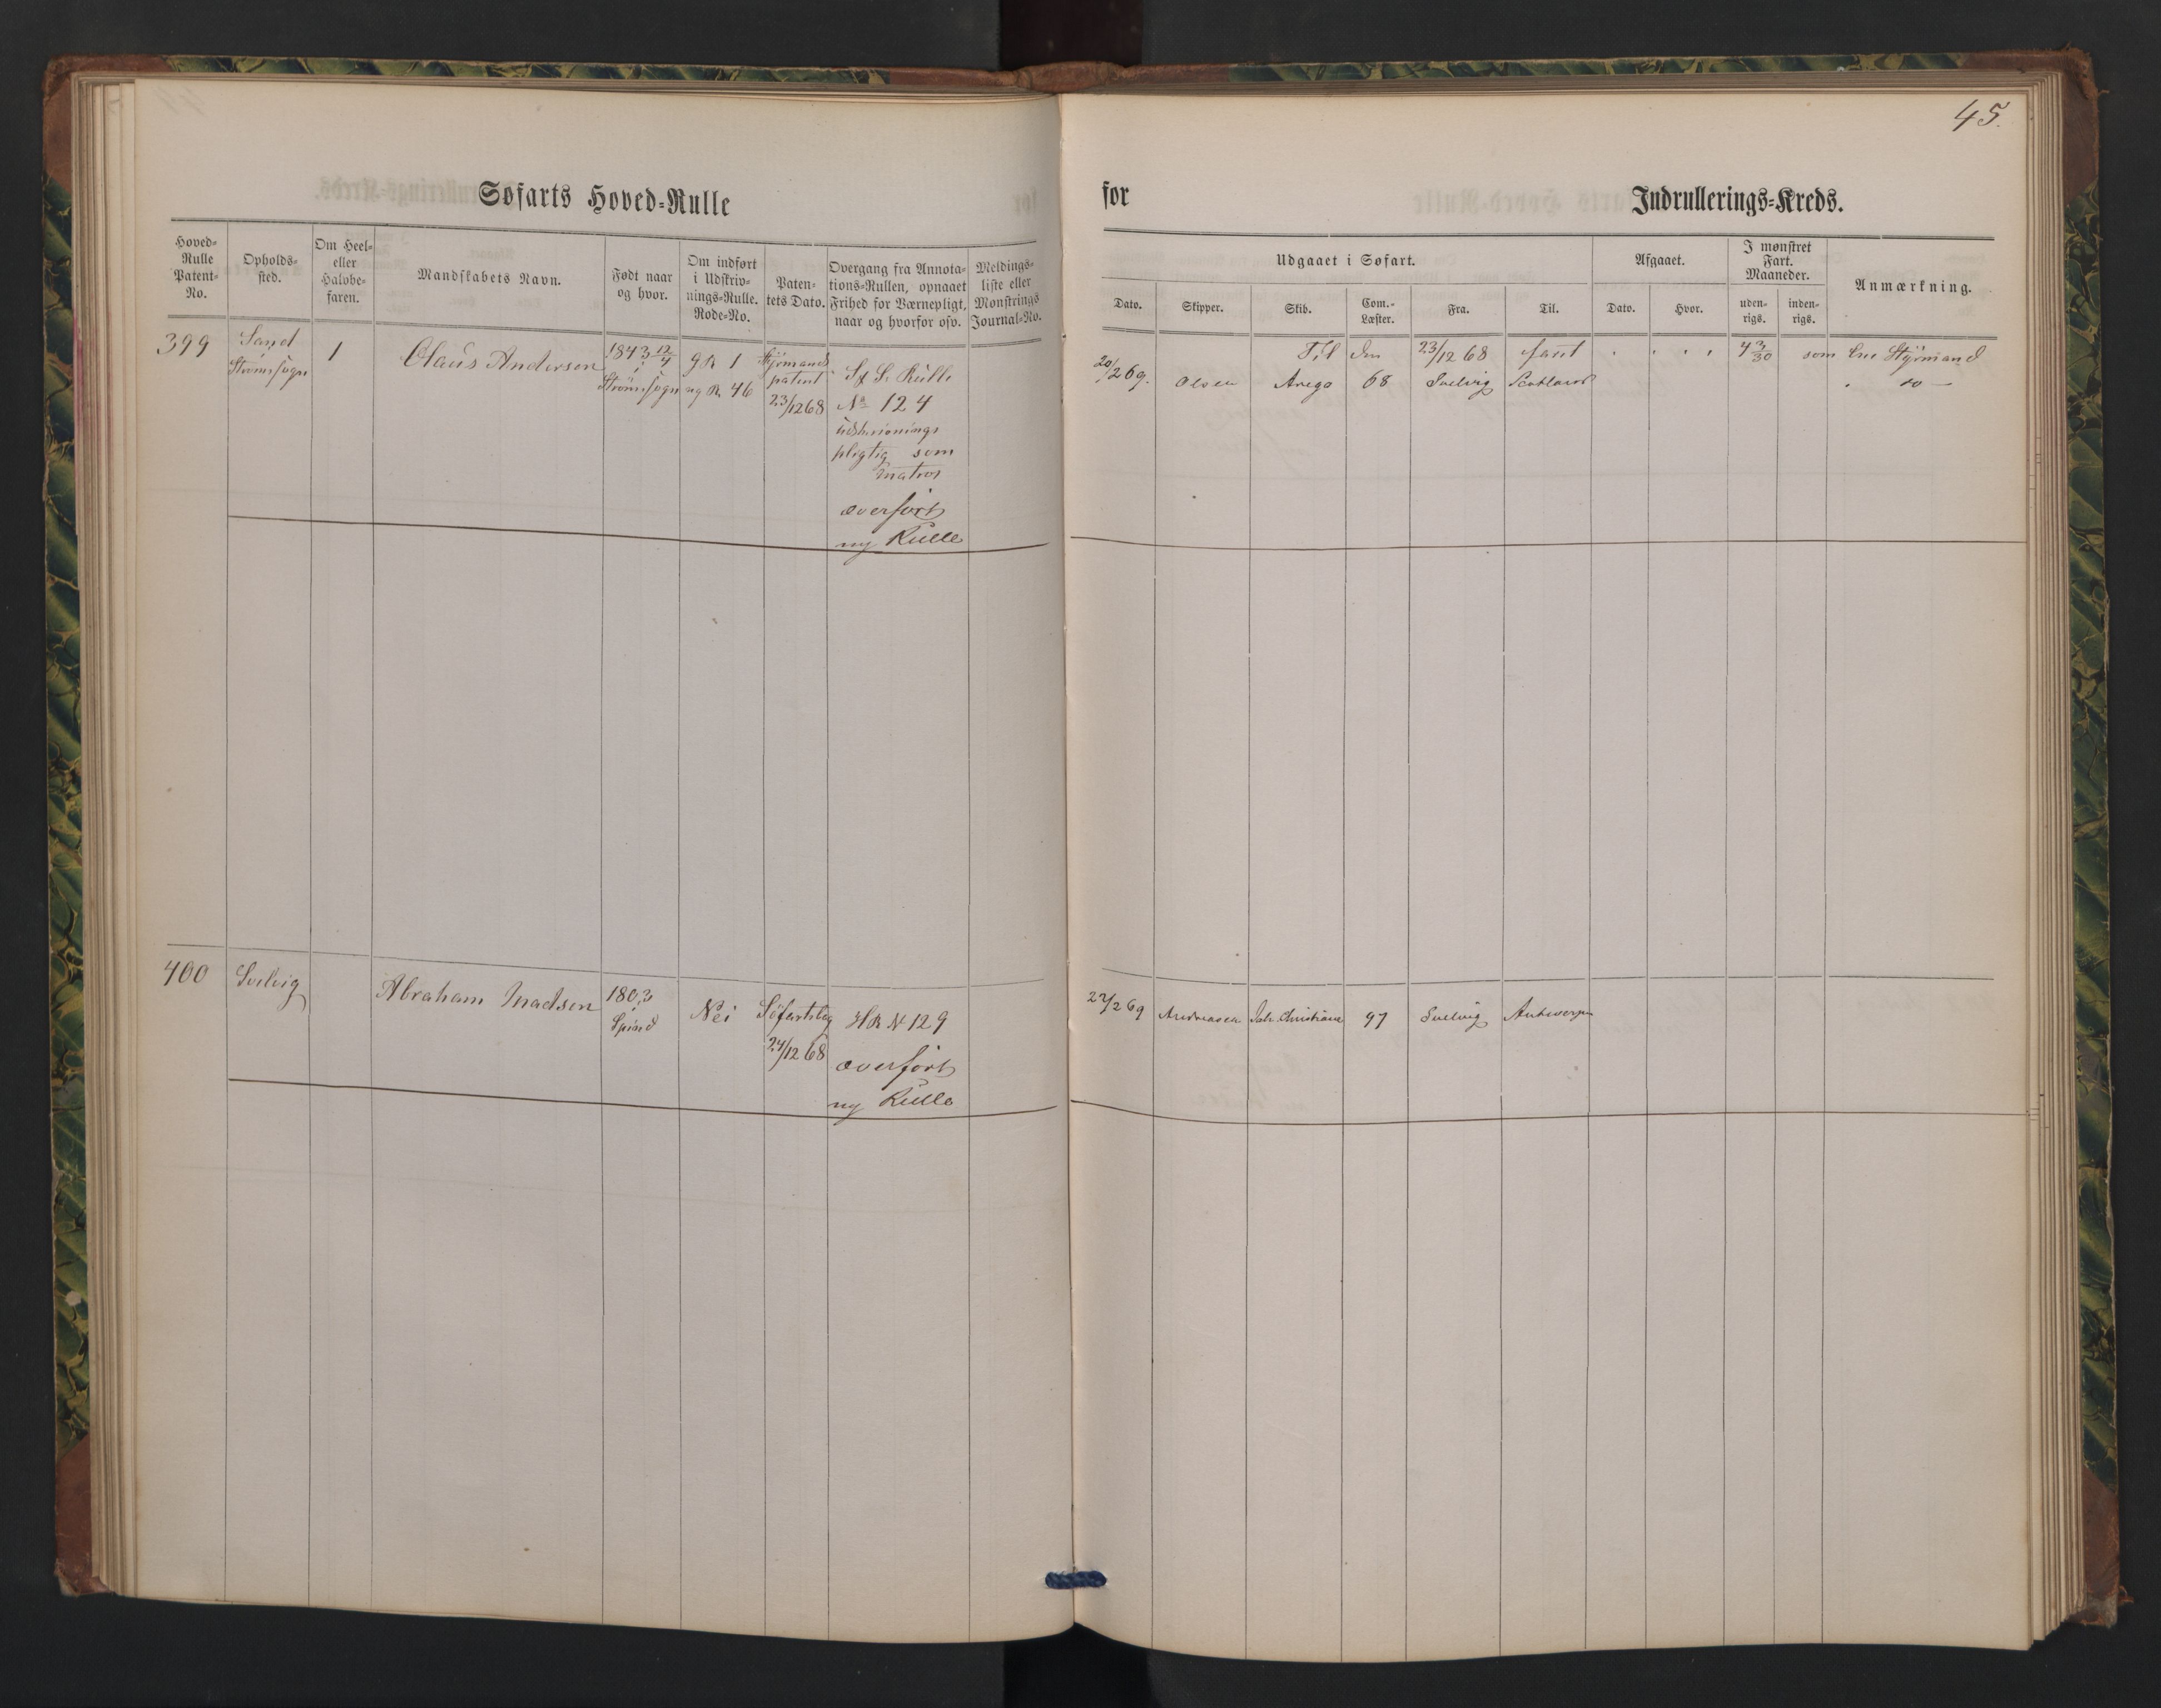 45.
Søfarts Hoved-Rulle
for
Indrullerings-Kreds.
Hoved-
Rulle
Patent-
No.
Opholds-
sted.
Om Heel-
eller
Halvbe-
faren.
Mandskabets Navn.
Født naar
og hvor.
Om indført
i Udskriv-
nings-Rulle.
Rode-No.
Paten-
tets Dato.
Overgang fra Annota-
tions-Rullen, opnaaet
Frihed for Værnepligt,
naar og hvorfor osv.
Meldings-
liste eller
Mønstrings
Journal-No.
Udgaaet i Søfart.
Dato.
Skipper.
Skib.
Com.-
Læster.
Fra.
Til.
Afgaaet.
Dato.
Hvor.
I mønstret
Fart.
Maaneder.
uden-
rigs.
inden-
rigs.
Anmærkning.
399
Sand
Strømsogn
1
Olaus Andersen
1843 12/4
i
Strømsogn
g R 1
ny R 46
Styrmands
patent
23/12 68
Sf S. Rulle
No 124
udskrivnings
pligtig som
Matros
overført
ny Rulle
Til den 23/12 68 faret . . . . 4 3/30 som Styrmand
20/2 69. Olsen 68 Svelvig Scotland . do —
400
Svelvig
Abraham Madsen
1803
i
Spind
Nei
24/12 68
HR N 129
overført
ny Rulle
2/2 69 Andreasen Christiane 97 Svelvig Antwerpen